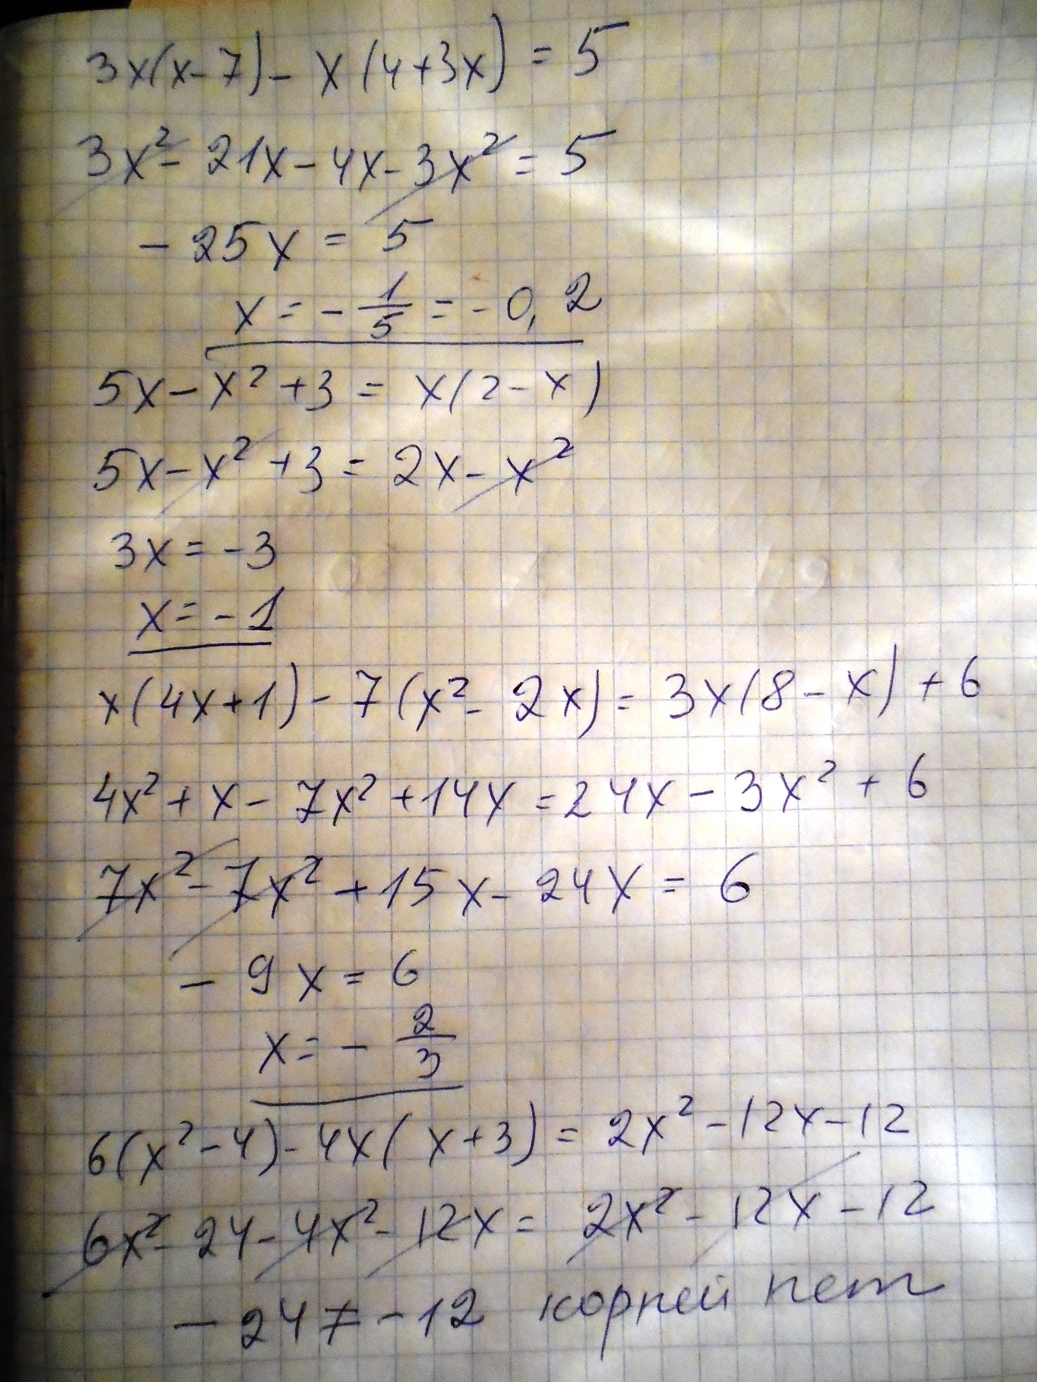 3x(x-7)-x(4+3x)=5
3x²-21x-4x-3x²=5
-25x=5
x=-1/5=-0,2
5x-x²+3=x(2-x)
5x-x²+3=2x-x²
3x=-3
x=-1
x(4x+1)-7(x²-2x)=3x(8-x)+6
4x²+x-7x²+14x=24x-3x²+6
7x²-7x²+15x-24x=6
-9x=6
x=-2/3
6(x²-4)-4x(x+3)=2x²-12x-12
6x²-24-4x²-12x=2x²-12x-12
-24≠-12 корней нет